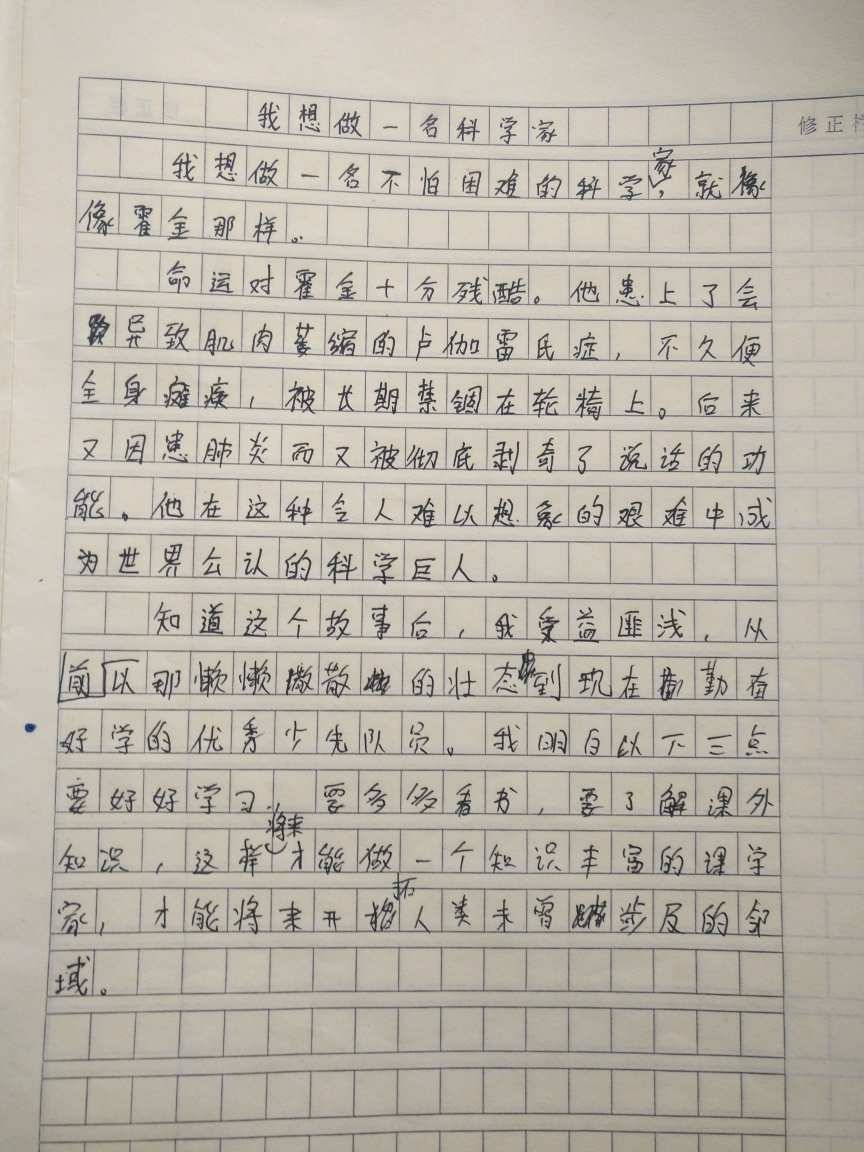 我想做一名科学家
修正栏
我想做一名不怕困难的科学家，就像
像霍金那样。
命运对霍金十分残酷。他患上了会
异致肌肉萎缩的卢伽雷氏症，不久便
全身瘫痪，被长期禁锢在轮椅上。后来
又因患肺炎而又被彻底剥夺了说话的功
能。他在这种令人难以想象的艰难中成
为世界公认的科学巨人。
知道这个故事后，我受益匪浅，从
前以那懒懒散散的壮态到现在勤奋
好学的优秀少先队员。我明白以下三点
要好好学习，要多多看书，要了解课外
知识，这样将来才能做一个知识丰富的课学
家，才能将来开拓人类未曾涉及的邻
域。